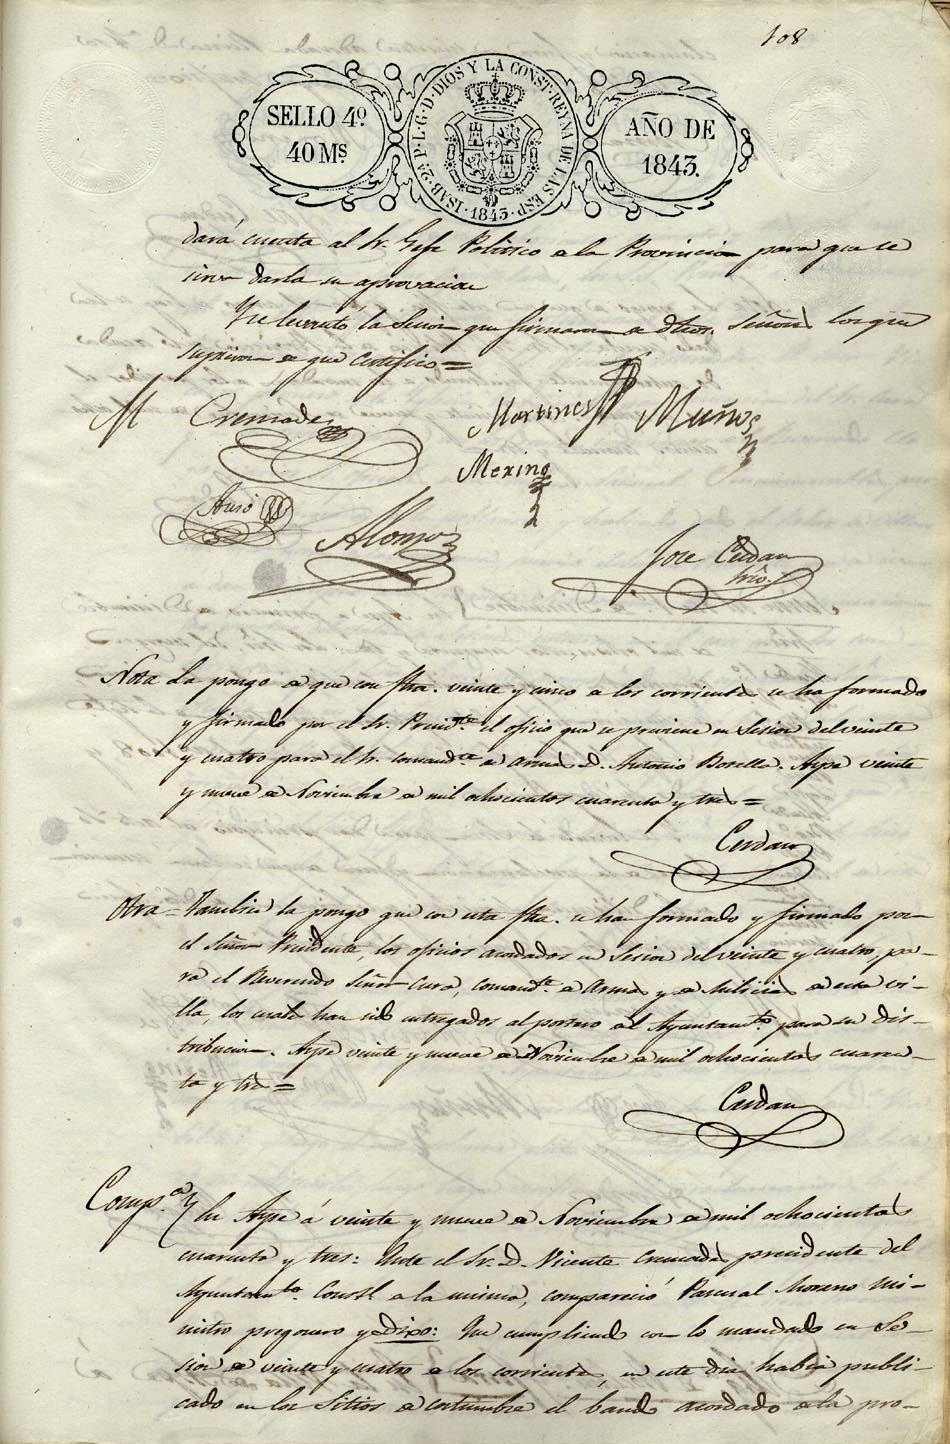 108
SELLO 4º
40 Ms
ISAB. 2ª P. L. G. D. DIOS Y LA CONST. REYNA DE LAS ESP. 1843.
AÑO DE
1843.
dará cuenta al Sr. Gefe Politico de la Provincia para que se
sirva darla su aprovacion
Y se levantó la Sesion que firmaron de dhos. Señores los que
supieron de que Certifico =
M Cremades Martines Muños
Merino
Ausó Alonso
Jose Cerdan
Srio.
Nota La pongo de que con fha. veinte y cinco de los corrientes se ha formado
y firmado por el Sr. Presidte. el oficio que se previene en Sesion del veinte
y cuatro para el Sr. comandte. de Armas D. Antonio Botella. Aspe veinte
y nueve de Noviembre de mil ochocientos cuarenta y tres =
Cerdan
Otra = Tambien la pongo que con esta fha. se ha formado y firmado por
el Señor Presidente, los oficios acordados en Sesion del veinte y cuatro, pa-
ra el Reverendo Señor Cura, comandte. de Armas y de Milicias de esta vi-
lla, los cuales han sido entregados al portero del Ayuntamto. para su dis-
tribucion. Aspe veinte y nueve de Noviembre de mil ochocientos cuaren-
ta y tres =
Cerdan
Comp.ª En Aspe á veinte y nueve de Noviembre de mil ochocientos
cuarenta y tres: Ante el Sr. D. Vicente Cremades presidente del
Ayuntamto. Constl. de la misma, compareció Pascual Moreno mi-
nistro pregonero y dixo: Que cumpliendo con lo mandado en Se-
sion de veinte y cuatro de los corrientes, en este dia habia publi-
cado en los Sitios de costumbre el bando acordado de la pro-